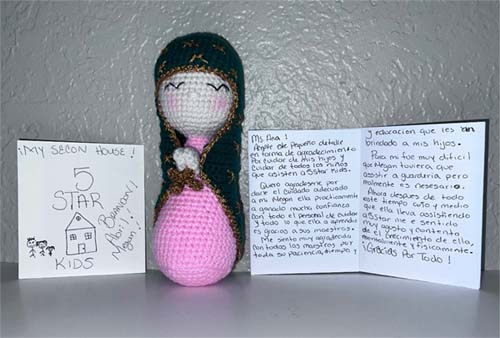 ¡MY SECON HOUSE!
5
STAR
KIDS
Megan!
Ms Ana!
Angie este pequeño detalle
en forma de agradecimiento
Por cuidar de mis hijos y
Cuidar de todos los niños
que asisten a 5 Star Kids.
Quero agradeserme por
darle el cuidado adecuado
a mi Megan ella practicamente
a ganado mucha confianza
con todo el personal de cuidar
y todo lo que ella a aprendido
es gracias a sus maestras.
Me siento muy agradecida
con todos los maestros por
toda su paciencia, tiempo y
y educacion que les an
brindado a mis hijos.
Para mi fue muy dificil
que Megan tuviera que
asistir a guarderia, pero
realmente es nesesario.
Ahora despues de todo
este tiempo año y medio
que ella lleva assistiendo
a 5Star me e sentido
muy agusto y contenta
de el crecimiento de ella,
mentalmente y fisicamente.
¡Gracias Por Todo!